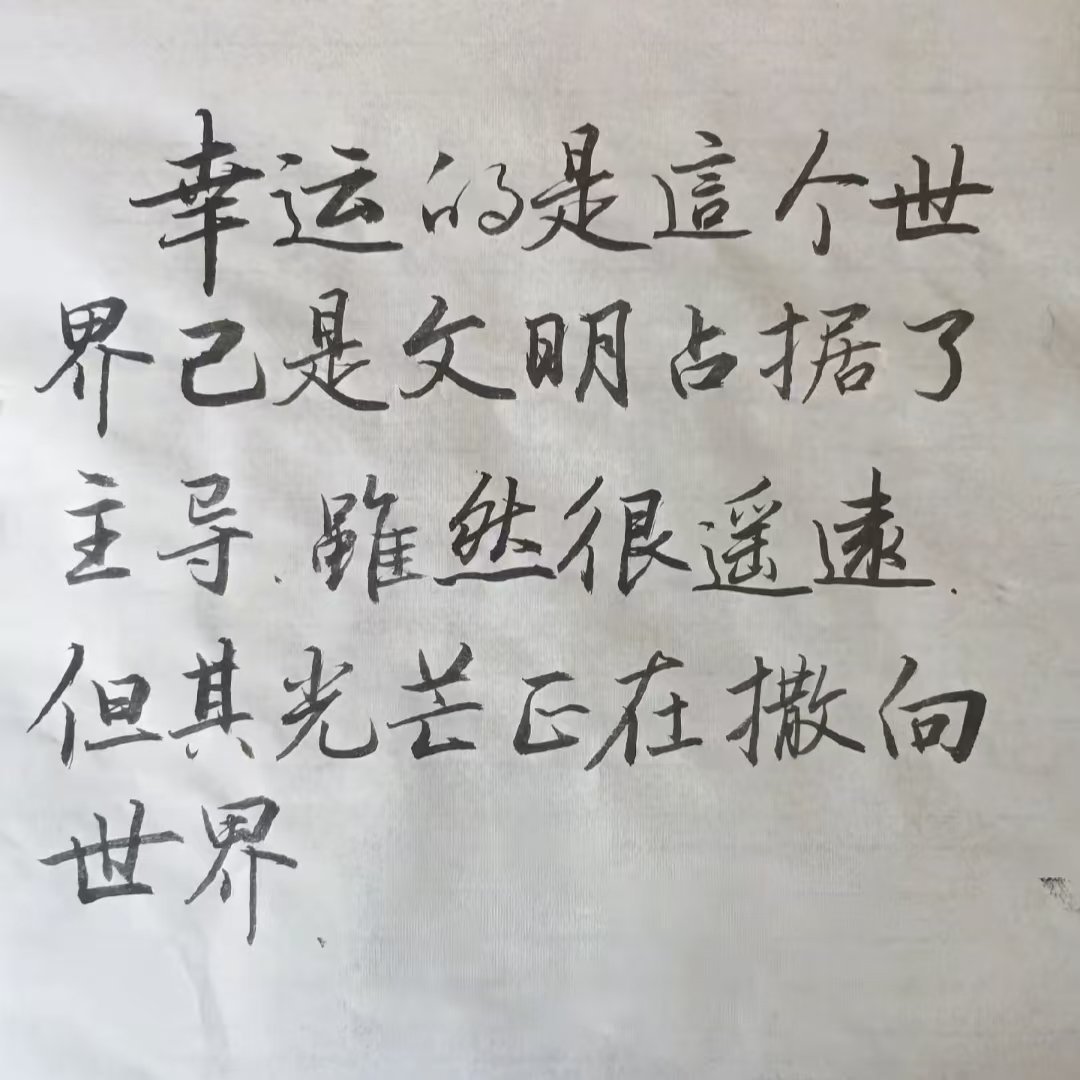 幸运的是這个世
界已是文明占据了
主导.雖然很遥遠.
但其光芒正在撒向
世界.